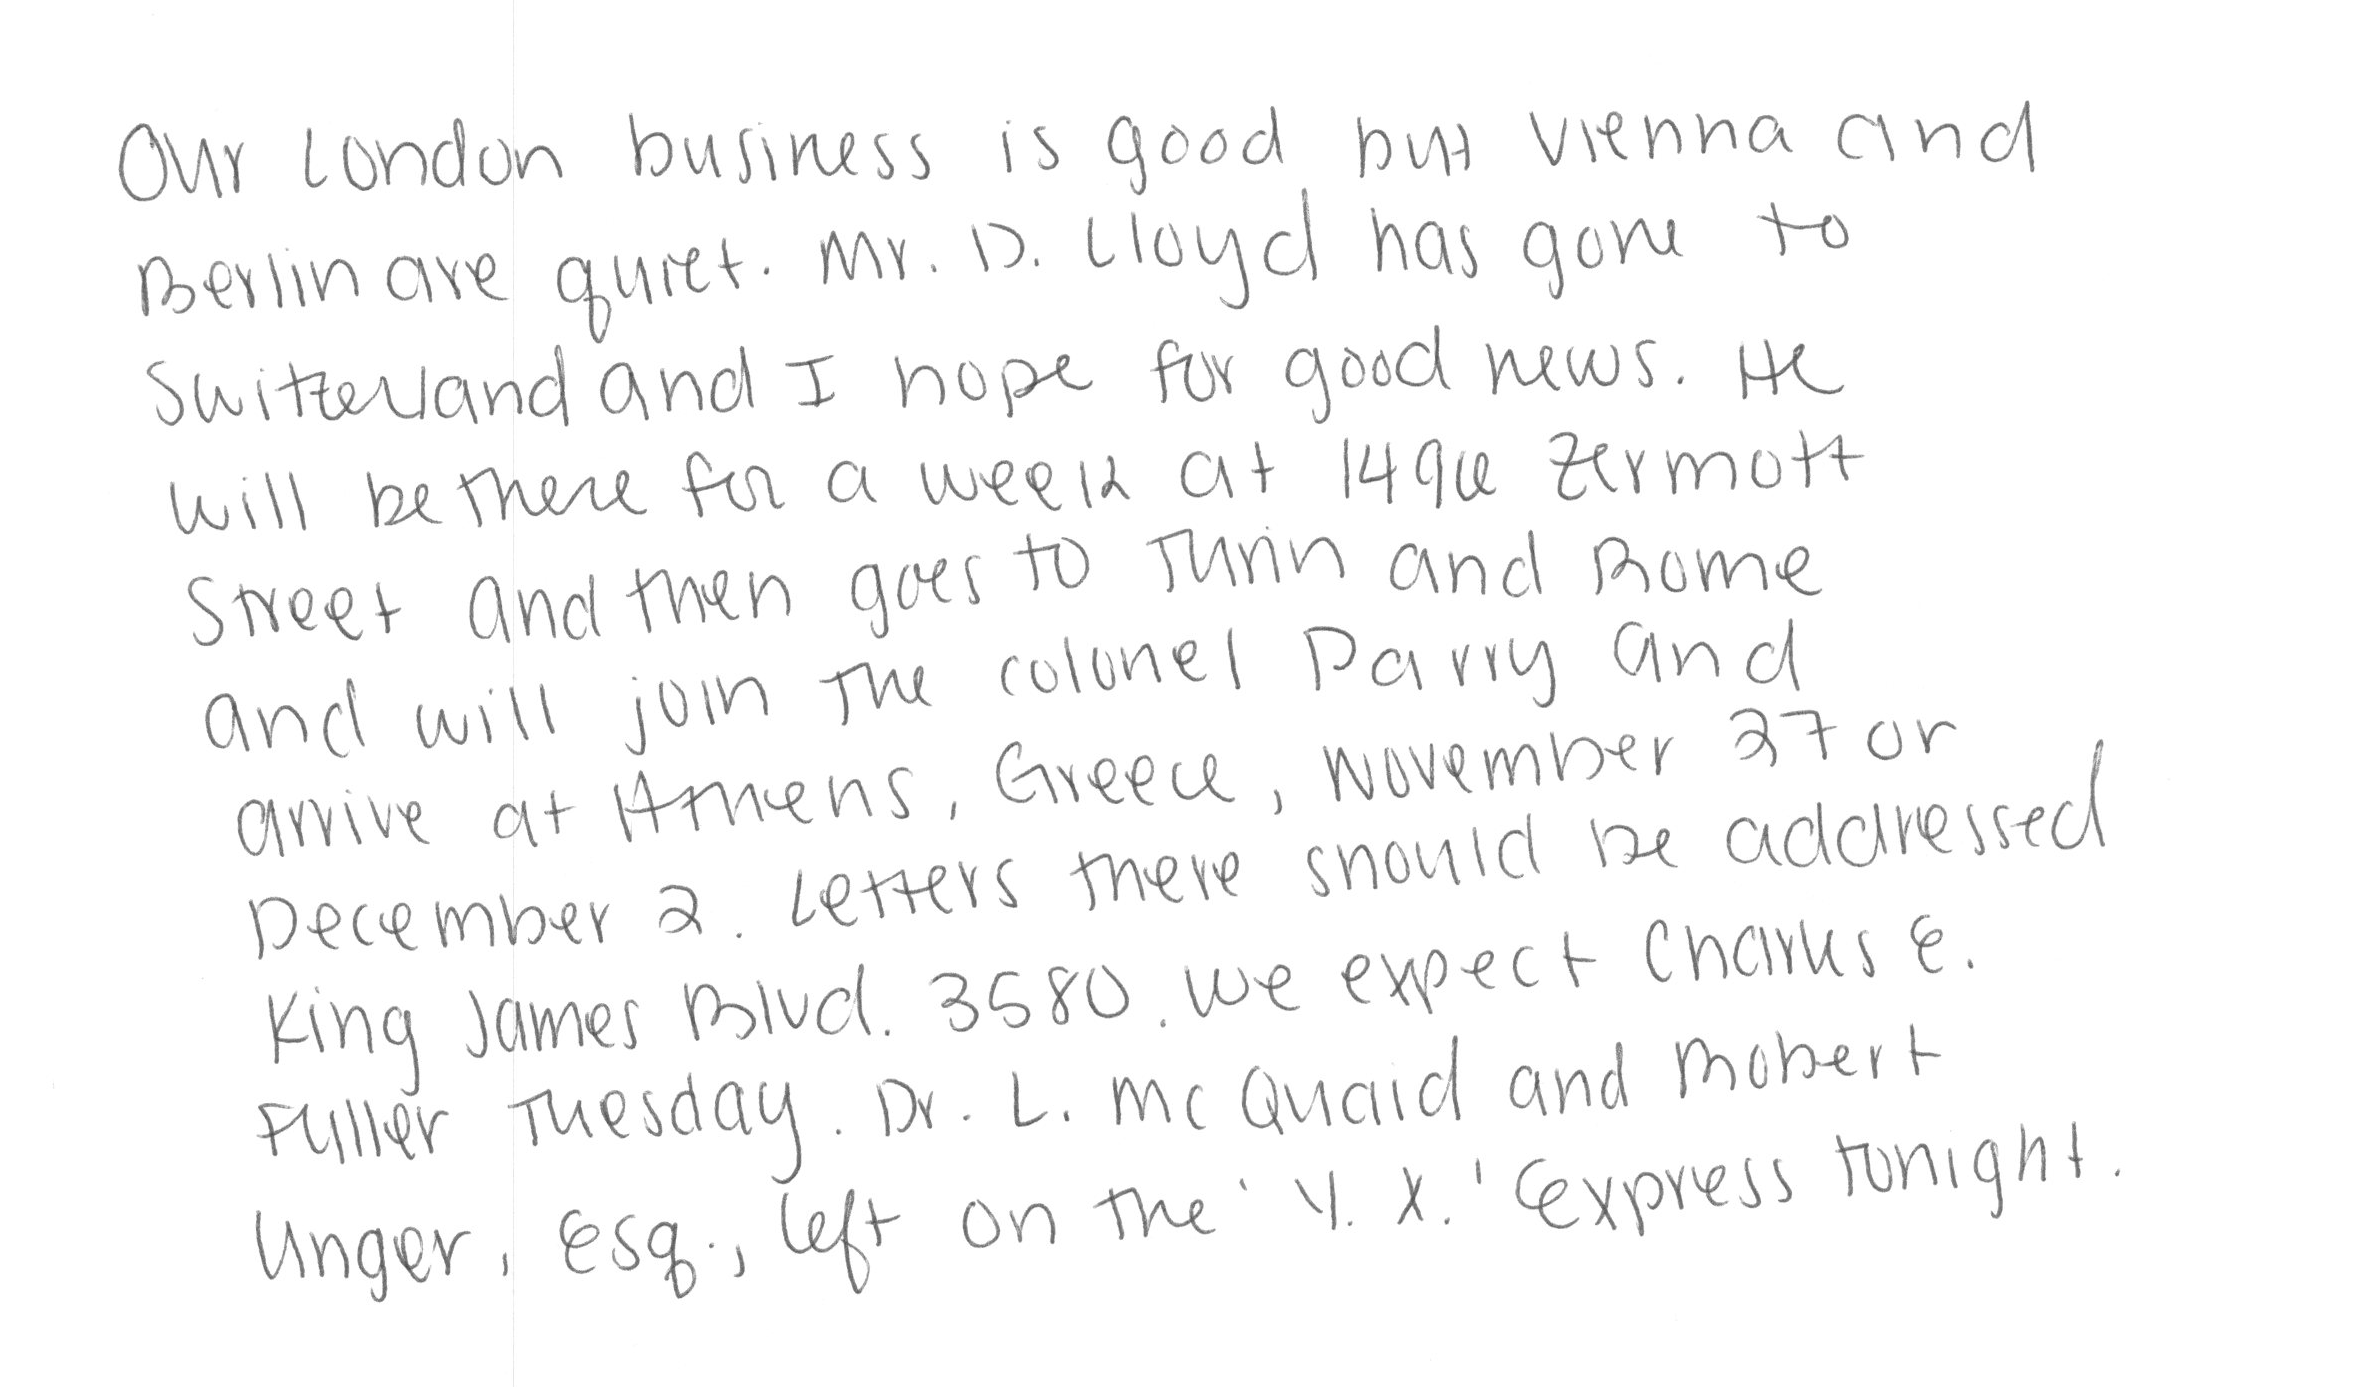 Our London business is good but Vienna and
Berlin are quiet. Mr. D. Lloyd has gone to
Switzerland and I hope for good news. He
will be there for a week at 1496 Zermott
Street and then goes to Turin and Rome
and will join the colonel Parry and
arrive at Athens, Greece, November 27 or
December 2. Letters there should be addressed
King James Blvd. 3580. We expect Charles E.
Fuller Tuesday. Dr. L. McQuaid and Robert
Unger, Esq., left on the 'Y. X.' Express tonight.